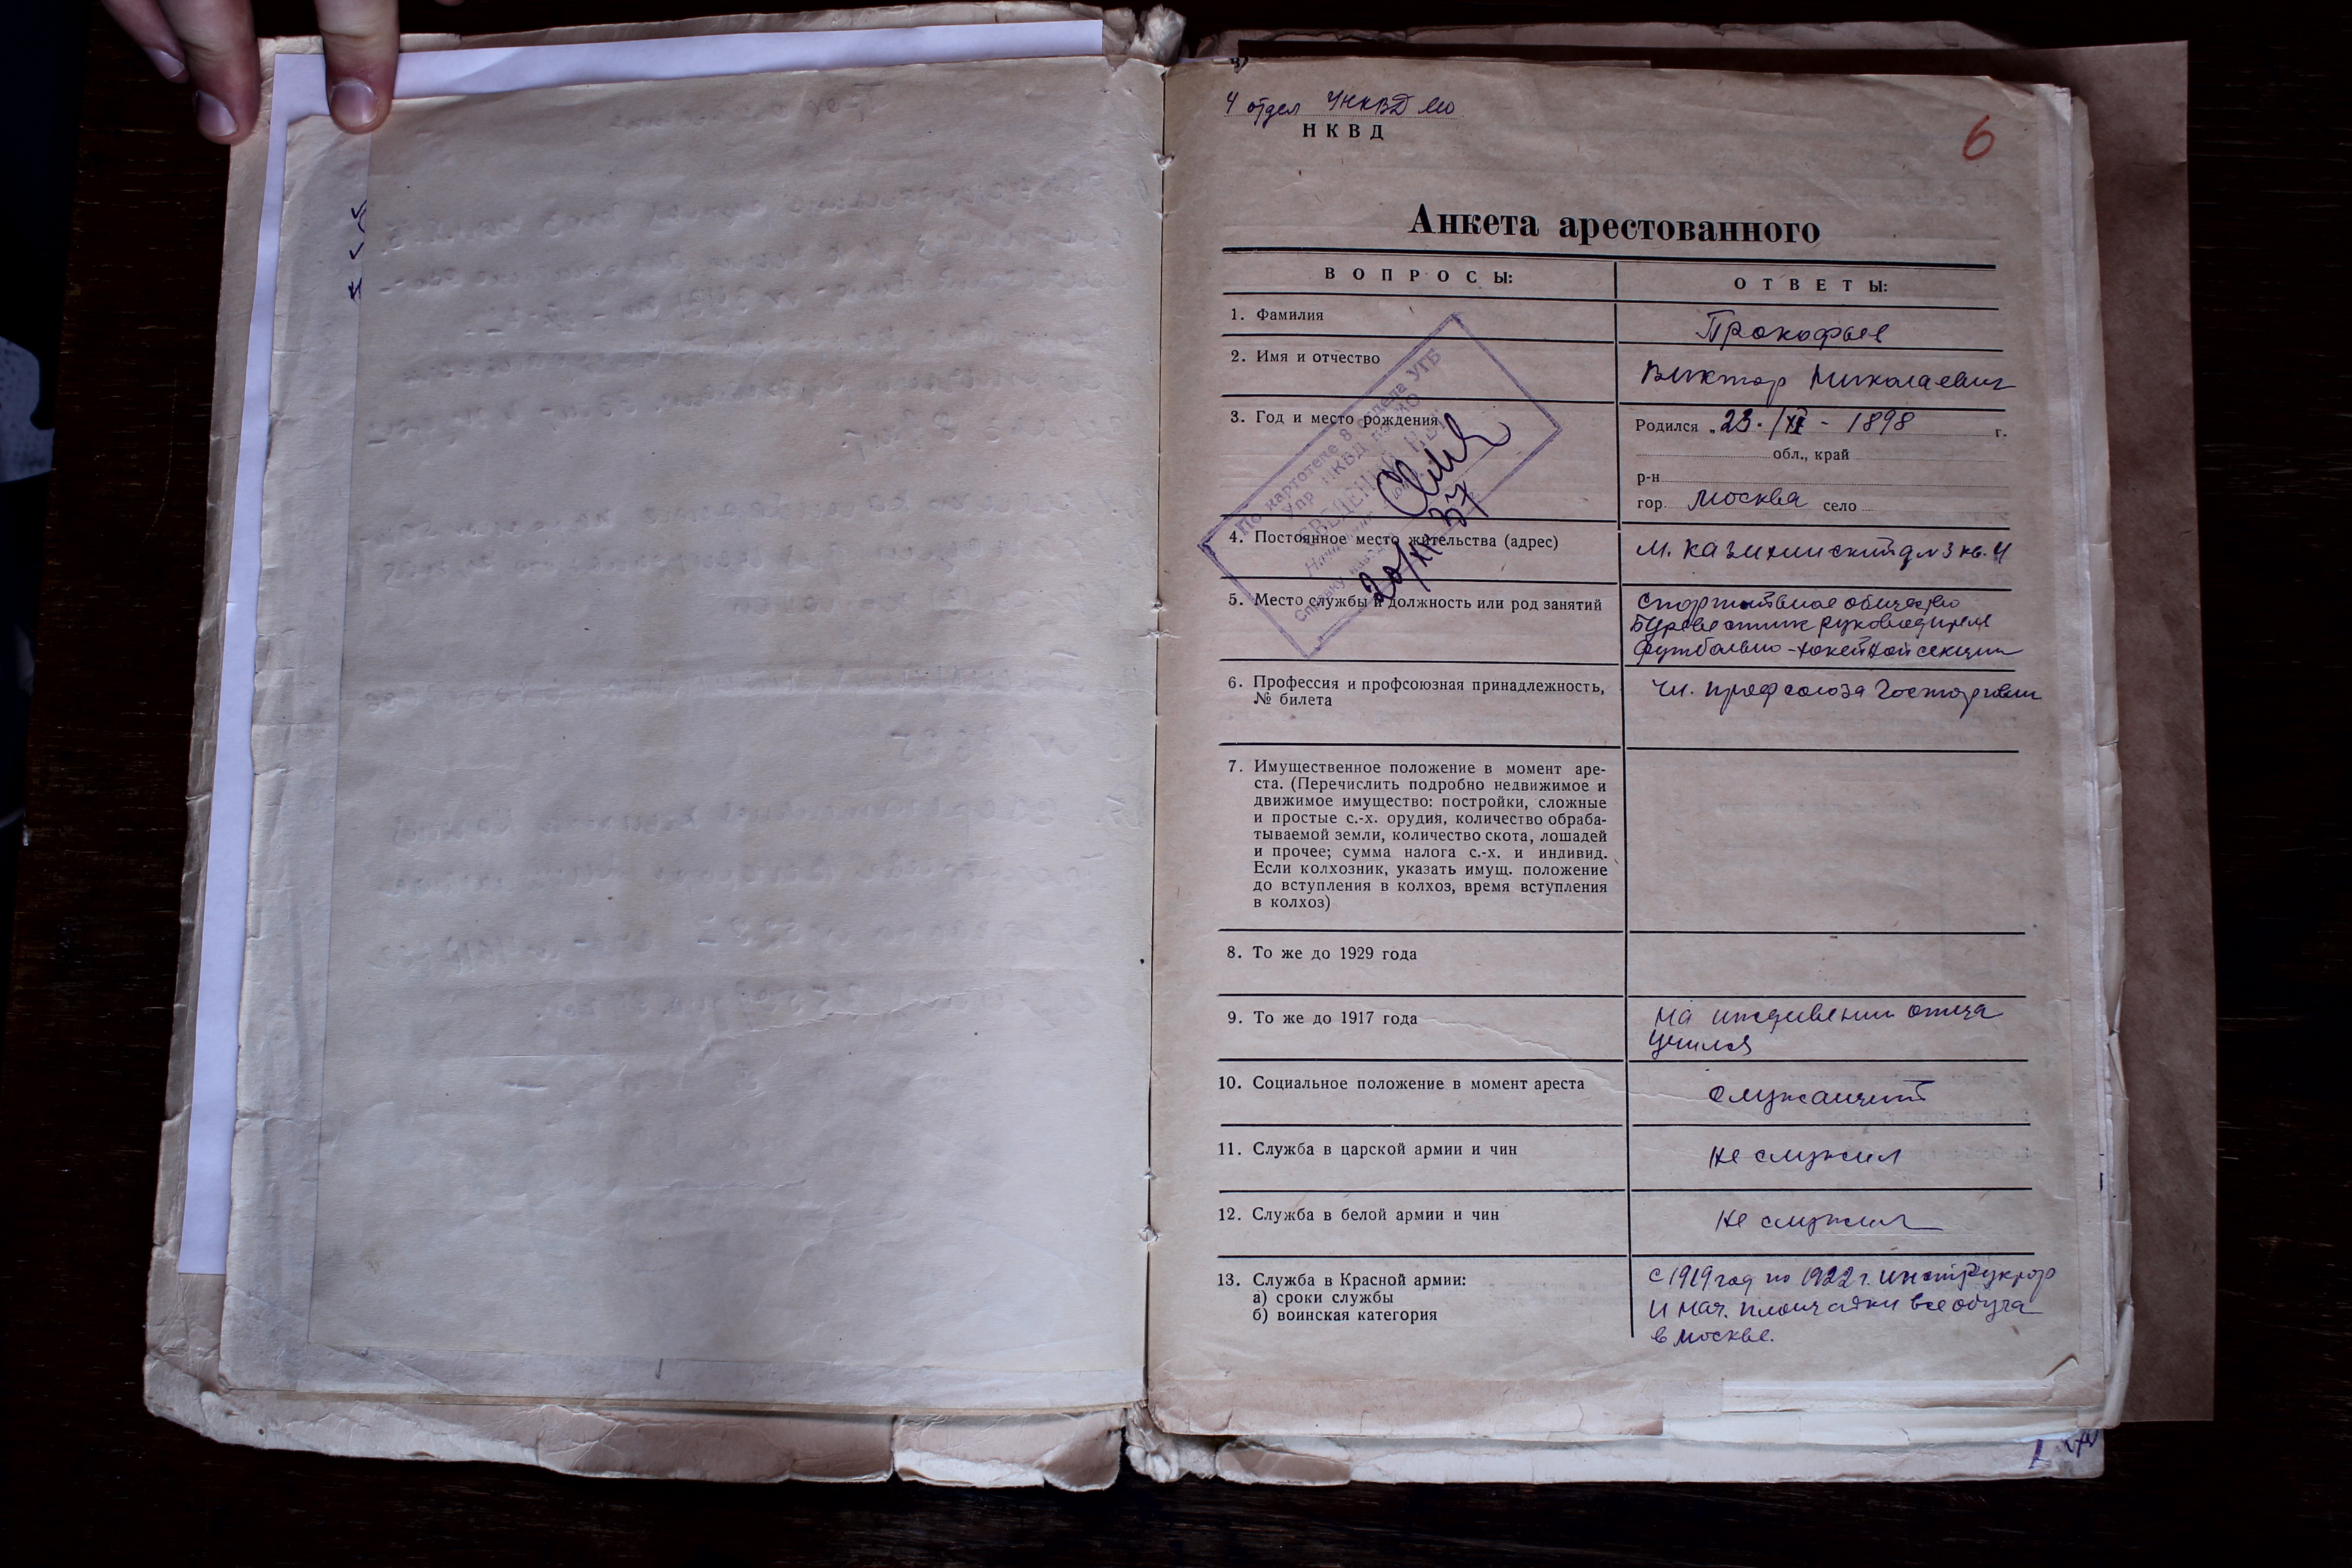 4 отдел УНКВД МО
НКВД
6
Анкета арестованного
ВОПРОСЫ:
ОТВЕТЫ:
1. Фамилия
Прокофьев
2. Имя и отчество
Виктор Николаевич
3. Год и место рождения
Родился „23. / XI - 1898 г.
обл., край
р-н
гор. Москва село
4. Постоянное место жительства (адрес)
М. Казихинский д N 3 кв. 4
5. Место службы и должность или род занятий
Спортивное общество
Буревестник руководитель
футбольно-хокейной секции
6. Профессия и профсоюзная принадлежность,
№ билета
Чл. профсоюза Госторговли
7. Имущественное положение в момент аре-
ста. (Перечислить подробно недвижимое и
движимое имущество: постройки, сложные
и простые с.-х. орудия, количество обраба-
тываемой земли, количество скота, лошадей
и прочее; сумма налога с.-х. и индивид.
Если колхозник, указать имущ. положение
до вступления в колхоз, время вступления
в колхоз)
8. То же до 1929 года
9. То же до 1917 года
На иждивении отца
учился
10. Социальное положение в момент ареста
Служащий
11. Служба в царской армии и чин
Не служил
12. Служба в белой армии и чин
Не служил
13. Служба в Красной армии:
а) сроки службы
б) воинская категория
С 1919 год по 1922 г. инструктор
и нач. площадки всеобуча
в Москве.
По картотеке 8 отдела УГБ
Упр НКВД по МО
СВЕДЕНИЙ НЕТ
Справку
20/XI 37